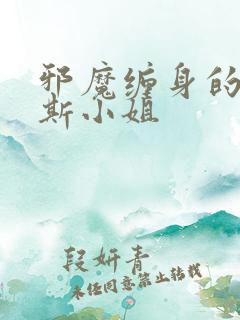 邪魔缠身的
斯小姐
段妍青
未经同意禁止转载